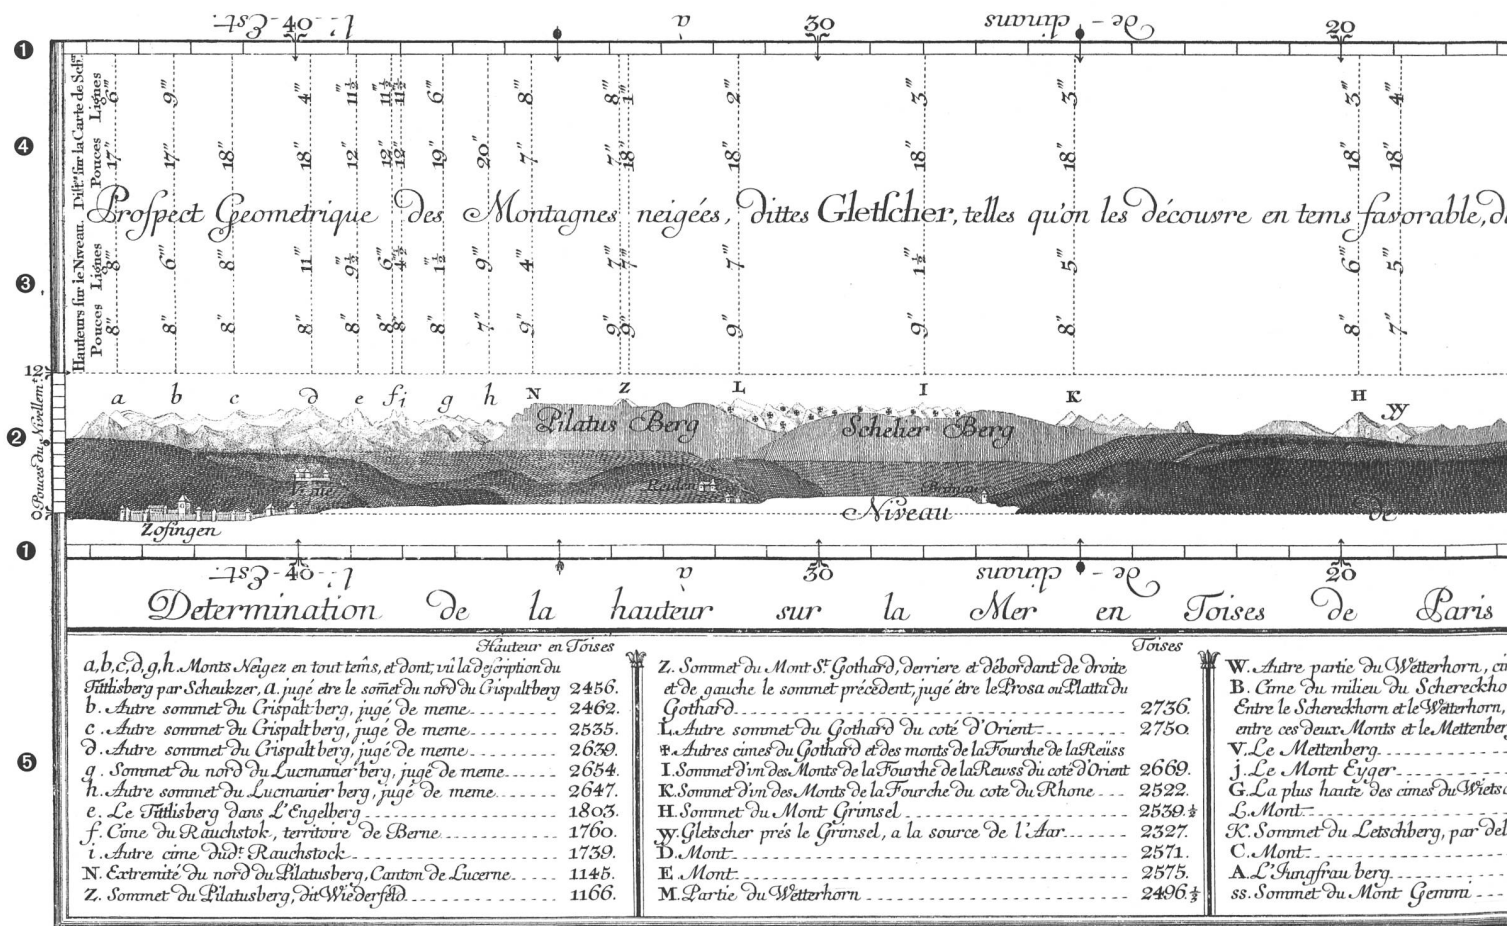 l'-Est. 40 à 30 de-clinans 20
❶
Hauteurs sur le Niveau. Dist.ce sur la Carte de Sch.er
Pouces Lignes Pouces Lignes
6''' 9''' 4''' 11½''' 11½''' 11½''' 6''' 8''' 8''' 1''' 2''' 3''' 3''' 3''' 4'''
❹
17'' 17'' 18'' 18'' 12'' 12'' 12'' 19'' 20'' 7'' 7'' 18'' 18'' 18'' 18'' 18'' 18''
Prospect Geometrique des Montagnes neigées, dittes Gletscher, telles qu'on les découvre en tems favorable, d
8''' 6''' 8''' 11''' 9½''' 6''' 4½''' 1½''' 9''' 4''' 7''' 7''' 7''' 1½''' 5''' 6''' 5'''
❸
8'' 8'' 8'' 8'' 8'' 8'' 8'' 8'' 7'' 9'' 9'' 9'' 9'' 9'' 8'' 8'' 7''
12
a b c d e f i g h N Z L I K H W
❷
Pouces du Nivellem.t
Pilatus Berg Schelier Berg
Reiden
0
Niveau de
Zofingen
❶
l'-Est. 40 à 30 de-clinans 20
Determination de la hauteur sur la Mer en Toises de Paris
❺
Hauteur en Toises
a,b,c,d,g,h. Monts Neigez en tout tems, et dont, vû la description du
Tittlisberg par Scheukzer, a. jugé etre le somet du nord du Crispaltberg 2456.
b. Autre sommet du Crispalt berg, jugé de meme 2462.
c. Autre sommet du Crispalt berg, jugé de meme 2535.
d. Autre sommet du Crispalt berg, jugé de meme 2639.
g. Sommet du nord du Lucmanier berg, jugé de meme 2654.
h. Autre sommet du Lucmanier berg, jugé de meme 2647.
e. Le Tittlisberg dans L'Engelberg 1803.
f. Cime du Rauchstok, territoire de Berne 1760.
i. Autre cime dud.t Rauchstock 1739.
N. Extremité du nord du Pilatusberg, Canton de Lucerne 1145.
Z. Sommet du Pilatusberg, dit Wiederfeld 1166.
Toises
Z. Sommet du Mont S.t Gothard, derriere et débordant de droite
et de gauche le sommet précedent, jugé étre le Prosa ou Platta du
Gothard 2736.
L. Autre sommet du Gothard du coté d'Orient 2750
✠. Autres cimes du Gothard et des monts de la Fourche de la Reüss
I. Sommet d'un des Monts de la Fourche de la Rewss du coté d'Orient 2669.
K. Sommet d'un des Monts de la Fourche du cote du Rhone 2522.
H. Sommet du Mont Grimsel 2539.½
W. Gletscher prés le Grimsel, a la source de l'Aar 2327.
D. Mont 2571.
E. Mont 2575.
M. Partie du Wetterhorn 2496.½
W. Autre partie du Wetterhorn, ci
B. Cime du milieu du Schereckho
Entre le Schereckhorn et le Wetterhorn,
entre ces deux Monts et le Mettenberg
V. Le Mettenberg
j. Le Mont Eyger
G. La plus haute des cimes du Wietsc
L. Mont
K. Sommet du Letschberg, par del
C. Mont
A. L'Iungfrau berg
ss. Sommet du Mont Gemmi